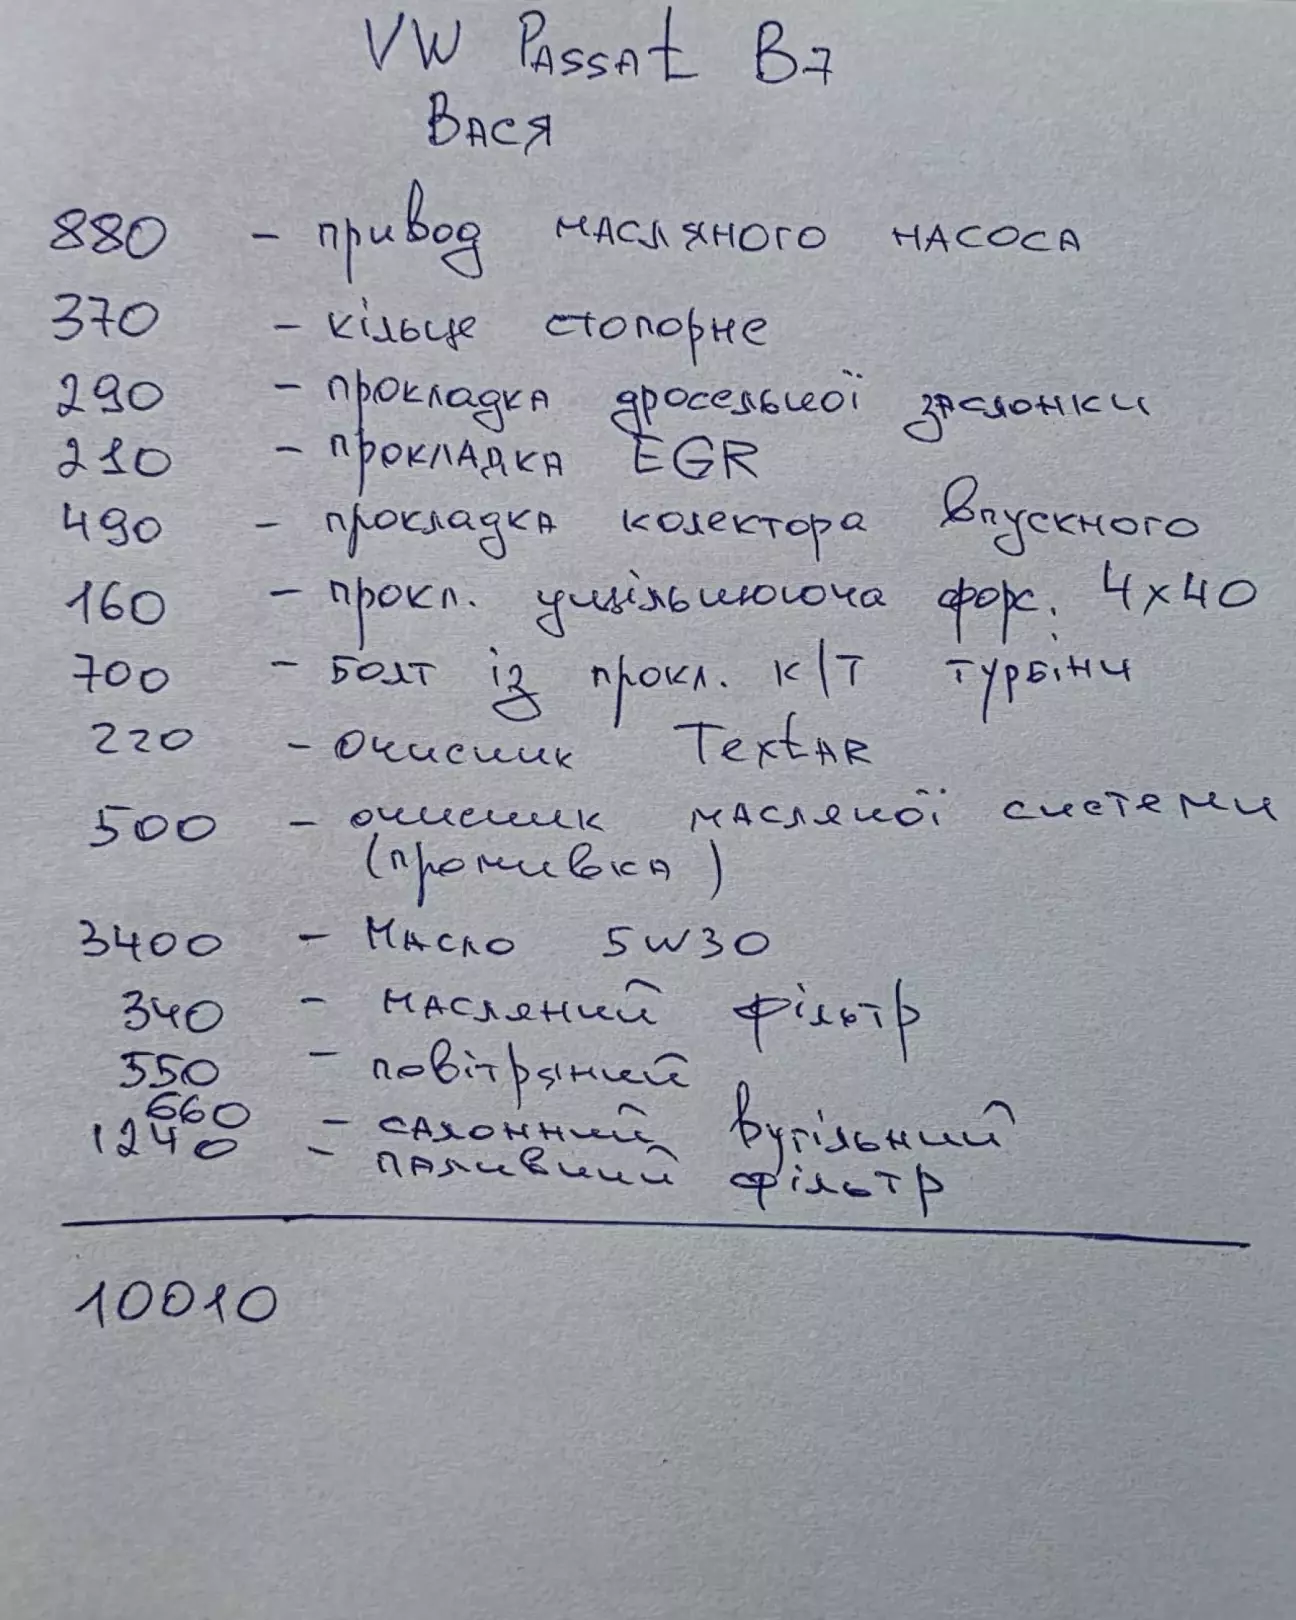 VW Passat B7
Вася
880 - привод масляного насоса
370 - кільце стопорне
290 - прокладка дросельної заслонки
210 - прокладка EGR
490 - прокладка колектора впускного
160 - прокл. ущільнююча форс. 4x40
700 - болт із прокл. к/т турбіни
220 - очисник Textar
500 - очисник масляної системи
(промивка)
3400 - Масло 5W30
340 - масляний фільтр
550 - повітряний
660 - салонний вугільний
1240 - паливний фільтр
10010